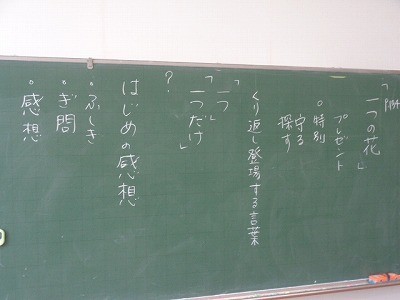 P134
「一つの花」
プレゼント
。特別
守る
探す
くり返し登場する言葉
「一つ」
「一つだけ」
?
はじめの感想
。ふしき
。ぎ問
。感想